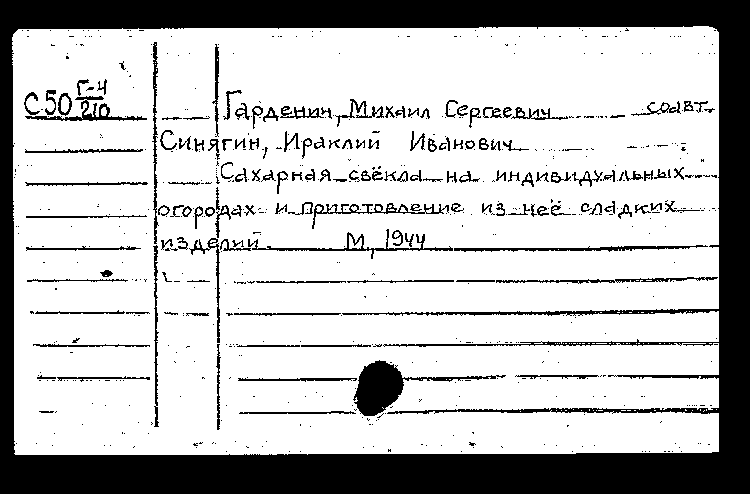 С50 Г-4/210
Гарденин, Михаил Сергеевич соавт.
Синягин, Ираклий Иванович
Сахарная свёкла на индивидуальных
огородах и приготовление из неё сладких
изделий. М, 1944